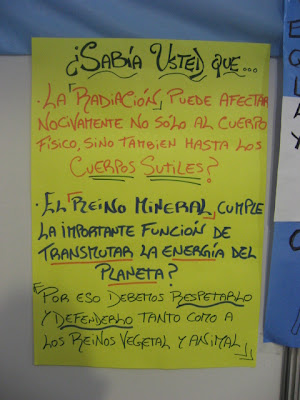 ¿SABÍA USTED QUE...
·LA "RADIACIÓN" PUEDE AFECTAR
NOCIVAMENTE NO SÓLO AL CUERPO
FÍSICO, SINO TAMBIEN HASTA LOS
CUERPOS SUTILES?
·EL "REINO MINERAL" CUMPLE
LA IMPORTANTE FUNCIÓN DE
TRANSMUTAR LA ENERGÍA DEL
PLANETA?
"POR ESO DEBEMOS RESPETARLO
Y DEFENDERLO TANTO COMO A
LOS REINOS VEGETAL Y ANIMAL"